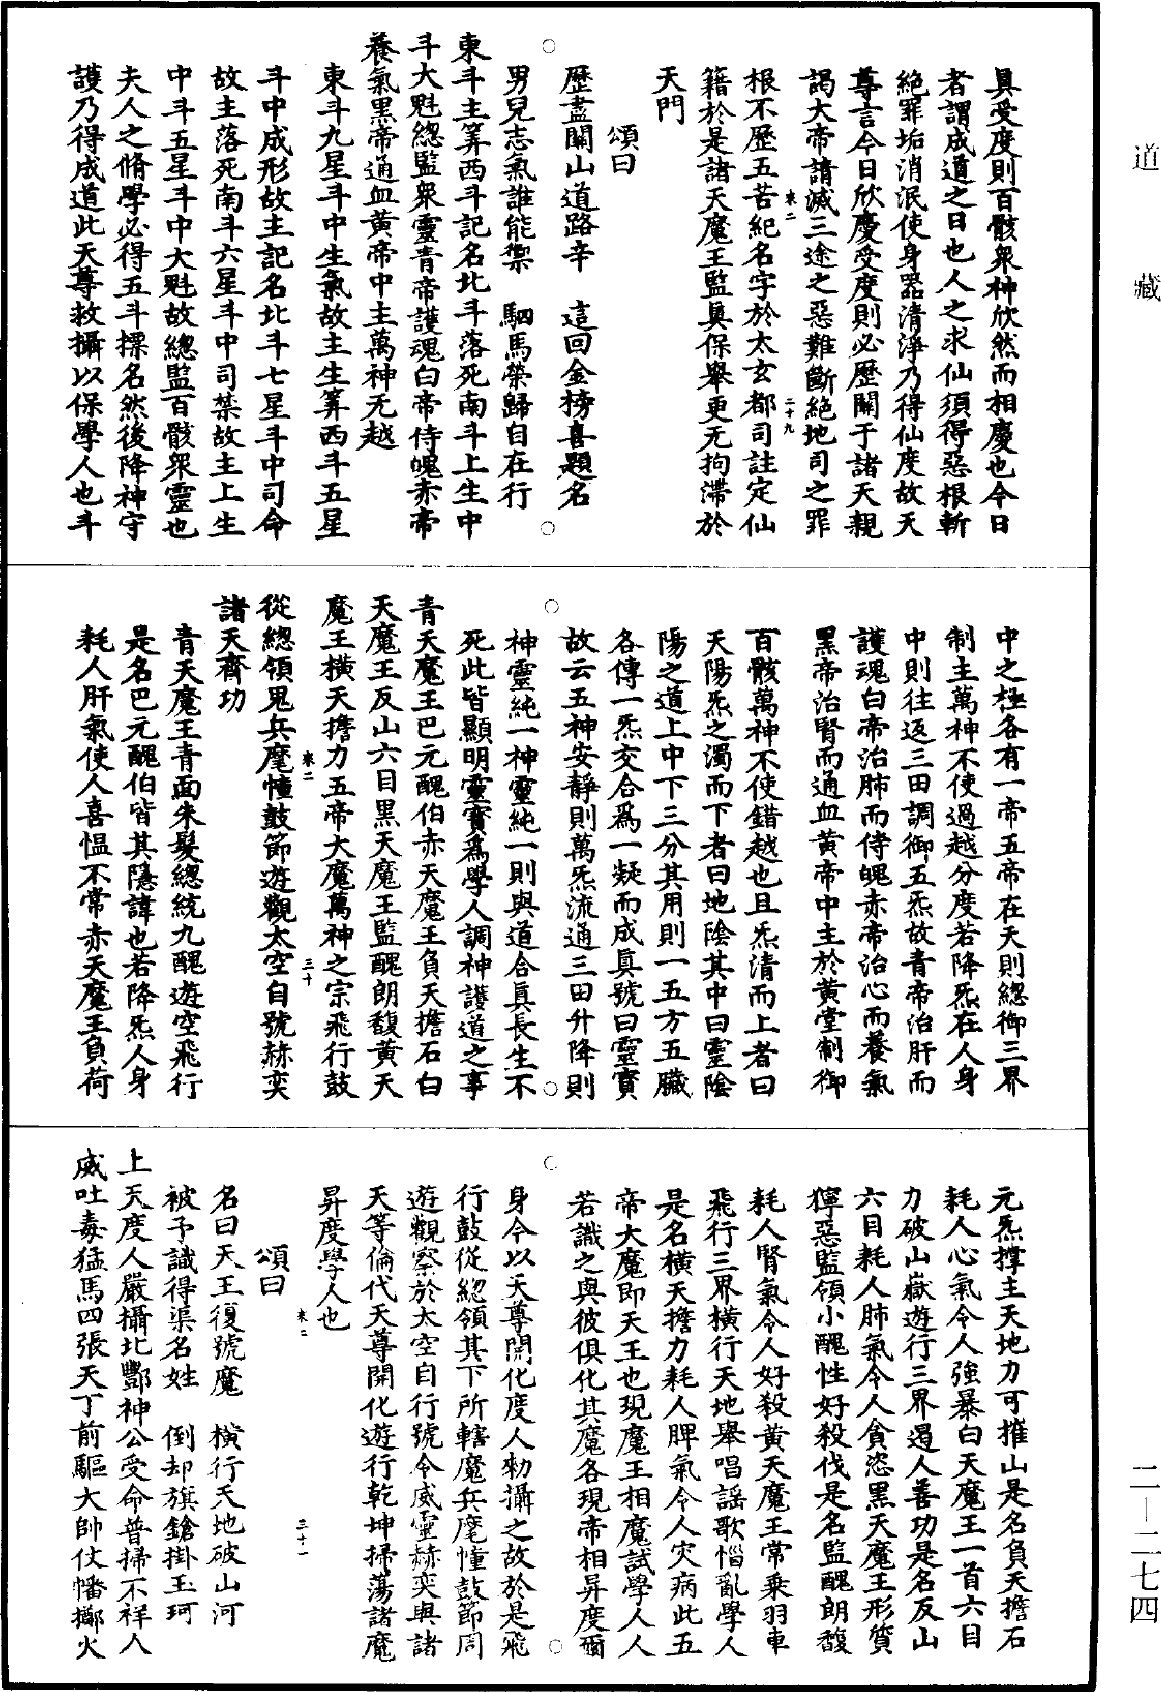 道藏
真受度則百骸衆神欣然而相慶也今日
者謂成道之日也人之求仙須得惡根斬
絕罪垢消泯使身器清淨乃得仙度故天
尊言今日欣慶受度則必歷關于諸天親
謁大帝請滅三途之惡難斷絕地司之罪
來二 二十九
根不歷五苦紀名字於太玄都司註定仙
籍於是諸天魔王監真保舉更无拘滯於
天門
頌曰
歷盡關山道路辛 這回金榜喜題名
男兒志氣誰能禦 駟馬榮歸自在行
東斗主筭西斗記名北斗落死南斗上生中
斗大魁總監衆靈青帝護魂白帝侍魄赤帝
養氣黑帝通血黃帝中主萬神无越
東斗九星斗中生氣故主生筭西斗五星
斗中成形故主記名北斗七星斗中司命
故主落死南斗六星斗中司禁故主上生
中斗五星斗中大魁故總監百骸衆靈也
夫人之脩學必得五斗摽名然後降神守
護乃得成道此天尊救攝以保學人也斗
中之極各有一帝五帝在天則總御三界
制主萬神不使過越分度若降炁在人身
中則往返三田調御五炁故青帝治肝而
護魂白帝治肺而侍魄赤帝治心而養氣
黑帝治腎而通血黃帝中主於黃堂制御
百骸萬神不使錯越也且炁清而上者曰
天陽炁之濁而下者曰地陰其中曰靈陰
陽之道上中下三分其用則一五方五臟
各傳一炁交合爲一凝而成真號曰靈寶
故云五神安靜則萬炁流通三田升降則
神靈純一神靈純一則與道合真長生不
死此皆顯明靈寶爲學人調神護道之事
青天魔王巴元醜伯赤天魔王負天擔石白
天魔王反山六目黑天魔王監醜朗馥黃天
魔王橫天擔力五帝大魔萬神之宗飛行鼓
來二 三十
從總領鬼兵麾幢鼓節遊觀太空自號赫奕
諸天齊功
青天魔王青面朱髮總統九醜遊空飛行
是名巴元醜伯皆其隱諱也若降炁人身
耗人肝氣使人喜慍不常赤天魔王負荷
元炁撑主天地力可摧山是名負天擔石
耗人心氣令人強暴白天魔王一首六目
力破山嶽遊行三界遏人善功是名反山
六目耗人肺氣令人貪恣黑天魔王形質
獰惡監領小醜性好殺伐是名監醜朗馥
耗人腎氣令人好殺黃天魔王常乘羽車
飛行三界橫行天地舉唱謠歌惱亂學人
是名橫天擔力耗人脾氣令人灾病此五
帝大魔即天王也現魔王相魔試學人人
若識之與彼俱化其魔各現帝相昇度爾
身今以天尊開化度人勑攝之故於是飛
行鼓從總領其下所轄魔兵麾幢鼓節周
遊觀察於太空自行號令威靈赫奕與諸
天等倫代天尊開化遊行乾坤掃蕩諸魔
昇度學人也
來二 三十一
頌曰
名曰天王復號魔 橫行天地破山河
被予識得渠名姓 倒却旗鎗掛玉珂
上天度人嚴攝北酆神公受命普掃不祥人
威吐毒猛馬四張天丁前驅大帥仗幡擲火
二—二七四